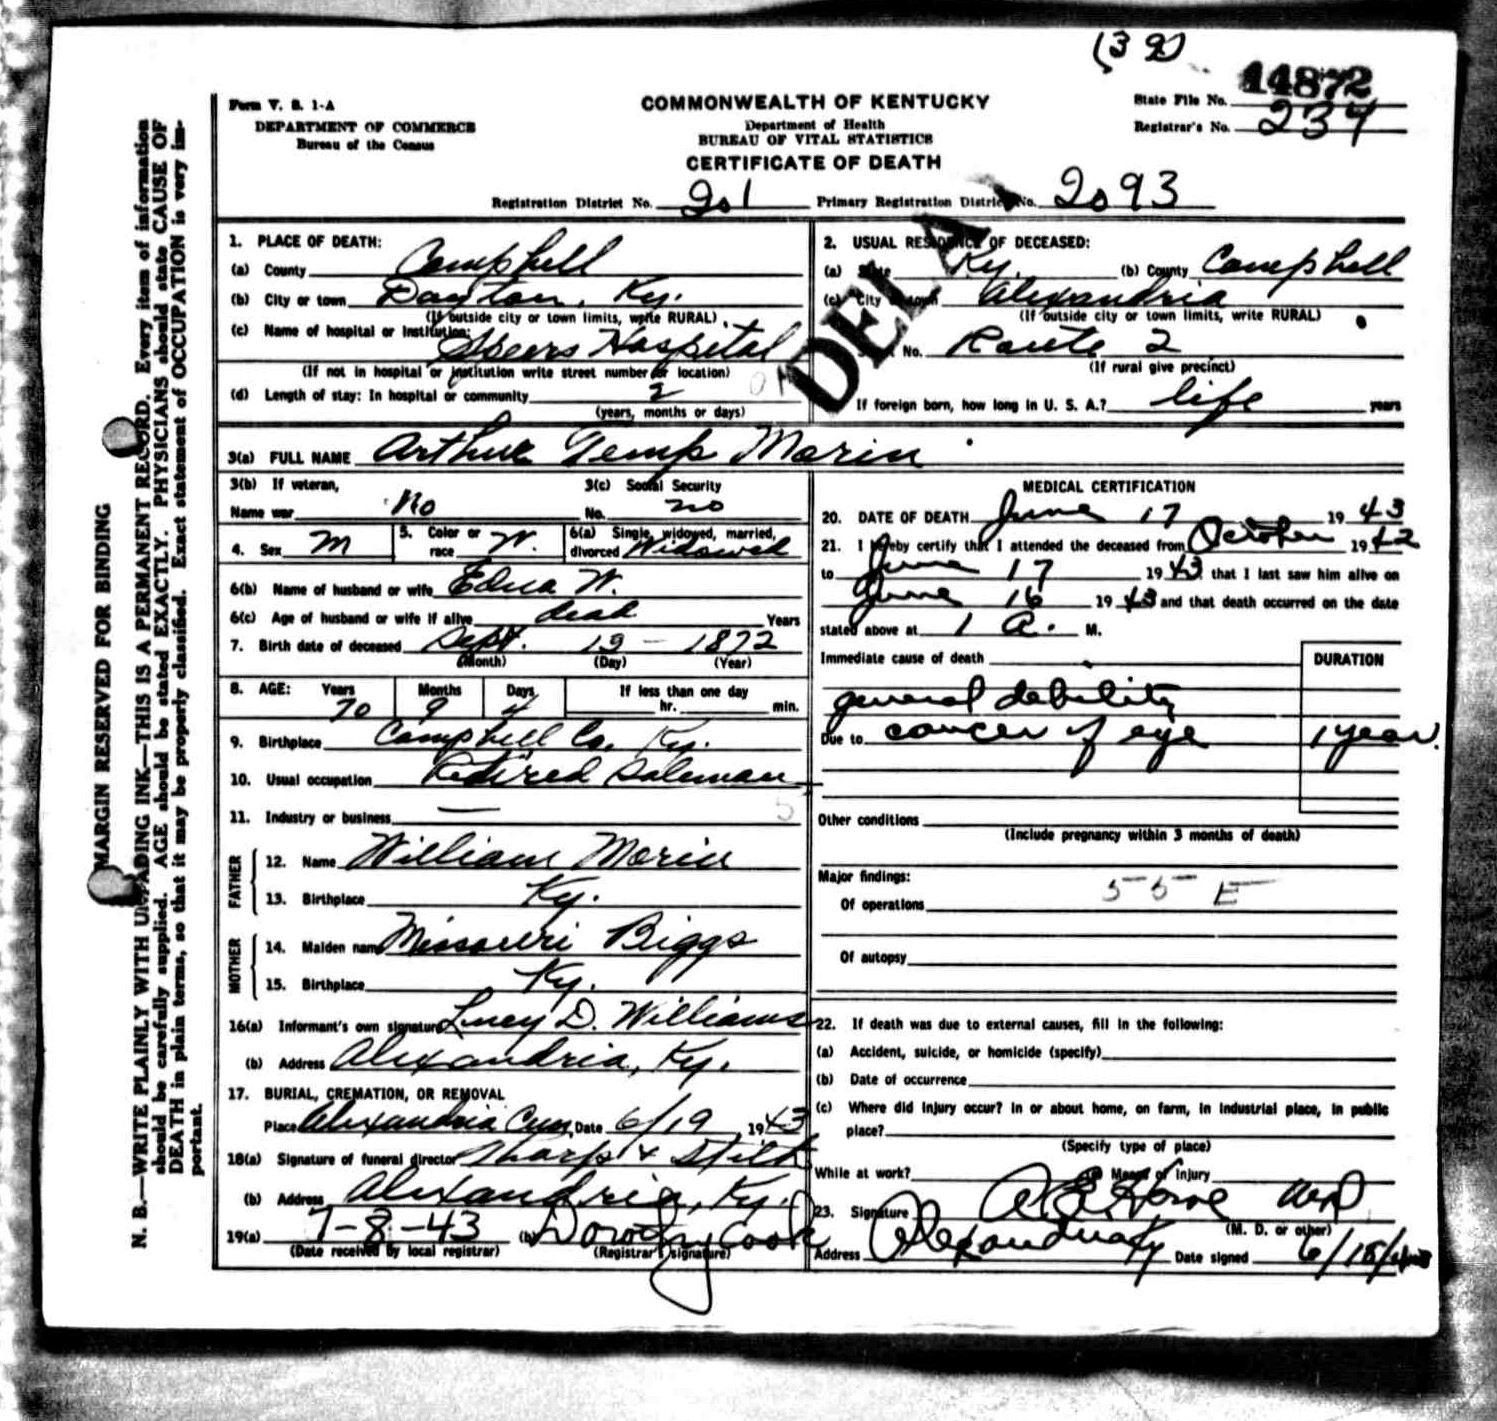 (39)
14872
Form V. S. 1-A
DEPARTMENT OF COMMERCE
Bureau of the Census
COMMONWEALTH OF KENTUCKY
Department of Health
BUREAU OF VITAL STATISTICS
CERTIFICATE OF DEATH
State File No.
Registrar's No. 234
Registration District No. 201 Primary Registration District No. 2093
MARGIN RESERVED FOR BINDING
N. B.—WRITE PLAINLY WITH UNFADING INK—THIS IS A PERMANENT RECORD. Every item of information
should be carefully supplied. AGE should be stated EXACTLY. PHYSICIANS should state CAUSE OF
DEATH in plain terms, so that it may be properly classified. Exact statement of OCCUPATION is very im-
portant.
1. PLACE OF DEATH:
(a) County Campbell
(b) City or town Dayton, Ky.
(If outside city or town limits, write RURAL)
(c) Name of hospital or institution:
Speers Hospital
(If not in hospital or institution write street number or location)
(d) Length of stay: In hospital or community 2
(years, months or days)
2. USUAL RESIDENCE OF DECEASED:
(a) State Ky. (b) County Campbell
(c) City or town Alexandria
(If outside city or town limits, write RURAL)
No. Route 2
(If rural give precinct)
If foreign born, how long in U. S. A.? life years
3(a) FULL NAME Arthur Temp Morin
3(b) If veteran,
Name war No
3(c) Social Security
No. no
4. Sex M
5. Color or race W.
6(a) Single, widowed, married, divorced Widowed
6(b) Name of husband or wife Edna W.
6(c) Age of husband or wife if alive dead Years
7. Birth date of deceased Sept. 13 - 1872
(Month) (Day) (Year)
8. AGE: Years Months Days If less than one day
70 9 4 hr. min.
9. Birthplace Campbell Co. Ky.
10. Usual occupation Retired Salesman
11. Industry or business —
FATHER
12. Name William Morin
13. Birthplace Ky.
MOTHER
14. Maiden name Missouri Biggs
15. Birthplace Ky.
16(a) Informant's own signature Lucy D. Williams
(b) Address Alexandria, Ky.
17. BURIAL, CREMATION, OR REMOVAL
Place Alexandria Cem. Date 6/19 1943
18(a) Signature of funeral director Tharp & Stith
(b) Address Alexandria, Ky.
19(a) 7-8-43 (b) Dorothy Cook
(Date received by local registrar) (Registrar's signature)
MEDICAL CERTIFICATION
20. DATE OF DEATH June 17 1943
21. I hereby certify that I attended the deceased from October 1942
to June 17 1943 that I last saw him alive on
June 16 1943 and that death occurred on the date
stated above at 1 A. M.
Immediate cause of death
DURATION
general debility
Due to cancer of eye 1 year.
Other conditions
(Include pregnancy within 3 months of death)
Major findings:
55 E
Of operations
Of autopsy
22. If death was due to external causes, fill in the following:
(a) Accident, suicide, or homicide (specify)
(b) Date of occurrence
(c) Where did injury occur? In or about home, on farm, in industrial place, in public
place?
(Specify type of place)
While at work? Means of injury
23. Signature MD
(M. D. or other)
Address Alexandria Ky Date signed 6/18/43